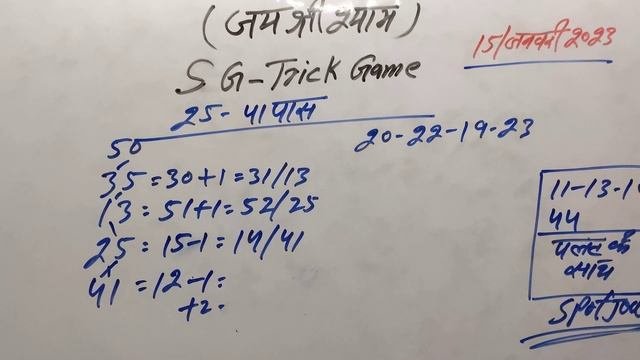 (जय श्री श्याम)
15/जनवरी 2023
S G-Trick Game
25-41 पास
20-22-19-23
50
35=30+1=31/13
13=51+1=52/25
25=15-1=14/41
41=12-1=
+2=
11-13-1
44
पलट के
साथ
Spot